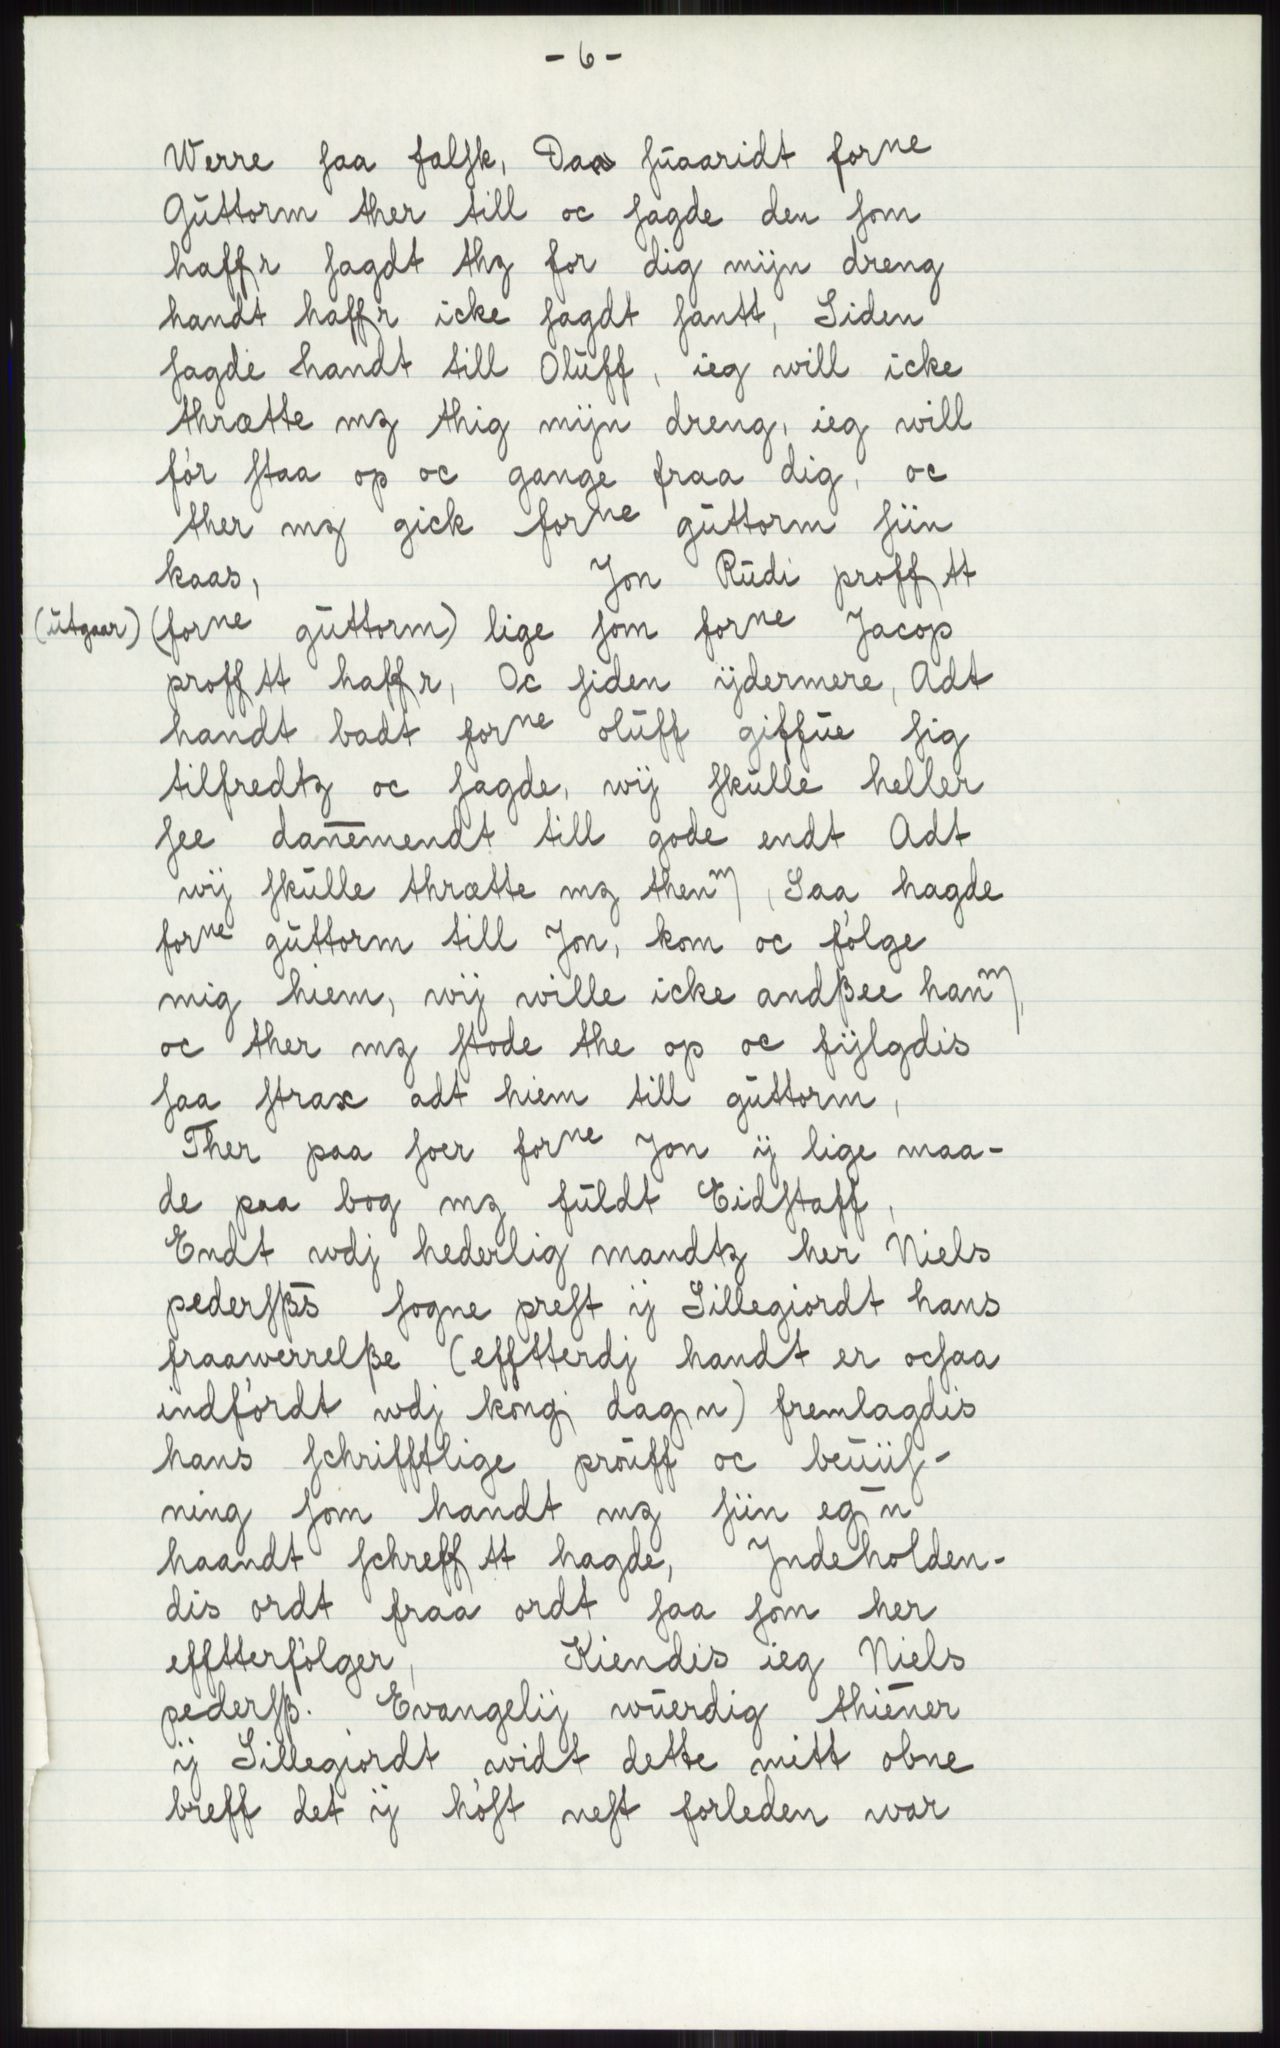 - 6 -
Werre saa falsk, Daa suaaridt forne
Guttorm ther till oc sagde den som
haffr sagdt thz for dig mijn dreng
handt haffr icke sagdt santt, Siden
sagde handt till Oluff, ieg will icke
thrætte mz thig mijn dreng, ieg will
før staa op oc gange fraa dig, oc
ther mz gick forne guttorm siin
kaas, Jon Rudi proff tt
(utgaar) (forne guttorm) lige som forne Jacop
proff tt haffr, Oc siden ijdermere, Adt
handt badt forne oluff giffue sig
tilfredtz oc sagde, wij skulle heller
see danemendt till gode endt Adt
wij skulle thrætte mz thenm, Saa hagde
forne guttorm till Jon, kom oc følge
mig hiem, wij wille icke andßee hanm,
oc ther mz stode the op oc fijlgdis
saa strax adt hiem till guttorm,
Ther paa soer forne Jon ij lige maa-
de paa bog mz fuldt Eidstaff,
Endt wdj hederlig mandtz her Niels
pedersßs sogne prest ij Sillegiordt hans
fraawerrelße (efftterdj handt er ocsaa
indførdt wdj kong dagn) fremlagdis
hans schrifftlige prøuff oc beuiis-
ning som handt mz siin egn
haandt schreff tt hagde, Jndeholden-
dis ordt fraa ordt saa som her
efftterfølger, Kiendis ieg Niels
pedersß. Evangelij wuerdig thiener
ij Sillegiordt widt dette mitt obne
breff det ij høst nest forleden war